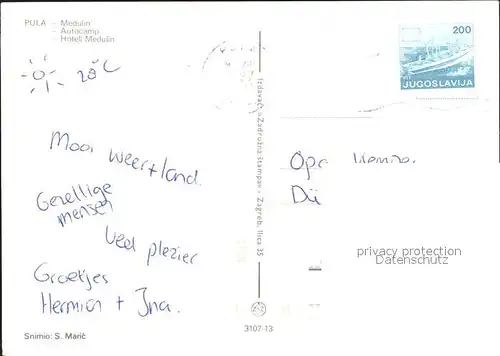 PULA - Medulin
- Autocamp
- Hoteli Medulin
28°C
Mooi weer + land.
Gezellige
mensen
Veel plezier
Groetjes
Hermien + Ina.
Snimio: S. Marić
Izdavač: Zadružna štampa - Zagreb, Ilica 35
3107-13
200
JUGOSLAVIJA
Opa
Dü
privacy protection
Datenschutz